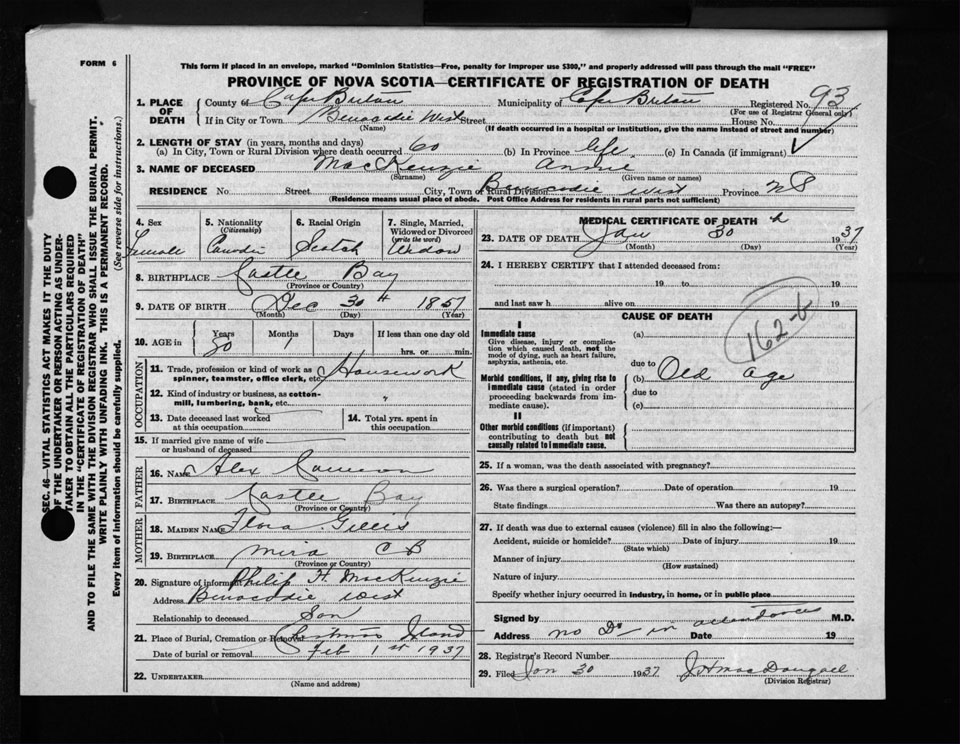 FORM 6
This form if placed in an envelope, marked "Dominion Statistics—Free, penalty for improper use $300," and properly addressed will pass through the mail "FREE"
PROVINCE OF NOVA SCOTIA—CERTIFICATE OF REGISTRATION OF DEATH
SEC. 46—VITAL STATISTICS ACT MAKES IT THE DUTY
OF THE UNDERTAKER OR PERSON ACTING AS UNDER-
TAKER TO OBTAIN ALL THE PARTICULARS REQUIRED
IN THE "CERTIFICATE OF REGISTRATION OF DEATH"
AND TO FILE THE SAME WITH THE DIVISION REGISTRAR WHO SHALL ISSUE THE BURIAL PERMIT.
WRITE PLAINLY WITH UNFADING INK. THIS IS A PERMANENT RECORD.
Every item of information should be carefully supplied. (See reverse side for instructions.)
1. PLACE OF DEATH County of Cape Breton Municipality of Cape Breton Registered No. 93
(For use of Registrar General only)
If in City or Town Benacadie West Street House No.
(Name) (If death occurred in a hospital or institution, give the name instead of street and number)
2. LENGTH OF STAY (in years, months and days)
(a) In City, Town or Rural Division where death occurred 60 (b) In Province life (c) In Canada (if immigrant)
3. NAME OF DECEASED MacKenzie Annie
(Surname) (Given name or names)
RESIDENCE No. Street City, Town or Rural Division Benacadie West Province N S
(Residence means usual place of abode. Post Office Address for residents in rural parts not sufficient)
4. Sex Female
5. Nationality (Citizenship) Canadian
6. Racial Origin Scotch
7. Single, Married, Widowed or Divorced (write the word) Widow
8. BIRTHPLACE Castle Bay
(Province or Country)
9. DATE OF BIRTH Dec 30th 1857
(Month) (Day) (Year)
10. AGE in Years 80 Months 1 Days If less than one day old hrs. or min.
OCCUPATION
11. Trade, profession or kind of work as spinner, teamster, office clerk, etc. Housework
12. Kind of industry or business, as cotton-mill, lumbering, bank, etc. "
13. Date deceased last worked at this occupation
14. Total yrs. spent in this occupation
15. If married give name of wife or husband of deceased
FATHER
16. NAME Alex Cameron
17. BIRTHPLACE Castle Bay
(Province or Country)
MOTHER
18. MAIDEN NAME Flora Gillis
19. BIRTHPLACE Mira C B
(Province or Country)
20. Signature of informant Philip H. MacKenzie
Address Benacadie West
Relationship to deceased Son
21. Place of Burial, Cremation or Removal Christmas Island
Date of burial or removal Feb 1st 1937
22. UNDERTAKER
(Name and address)
MEDICAL CERTIFICATE OF DEATH
23. DATE OF DEATH Jan 30th 1937
(Month) (Day) (Year)
24. I HEREBY CERTIFY that I attended deceased from:
19 to 19
and last saw h alive on 19
CAUSE OF DEATH
162-b
I
Immediate cause
Give disease, injury or complication which caused death, not the mode of dying, such as heart failure, asphyxia, asthenia, etc.
(a)
due to
Morbid conditions, if any, giving rise to immediate cause (stated in order proceeding backwards from immediate cause).
(b) Old age
due to
(c)
II
Other morbid conditions (if important) contributing to death but not causally related to immediate cause.
25. If a woman, was the death associated with pregnancy?
26. Was there a surgical operation? Date of operation 19
State findings Was there an autopsy?
27. If death was due to external causes (violence) fill in also the following:—
Accident, suicide or homicide? Date of injury 19
(State which)
Manner of injury
(How sustained)
Nature of injury
Specify whether injury occurred in industry, in home, or in public place
Signed by M.D.
Address no Dr in attendance Date 19
28. Registrar's Record Number
29. Filed Jan 30 1937 J. H. MacDougall
(Division Registrar)